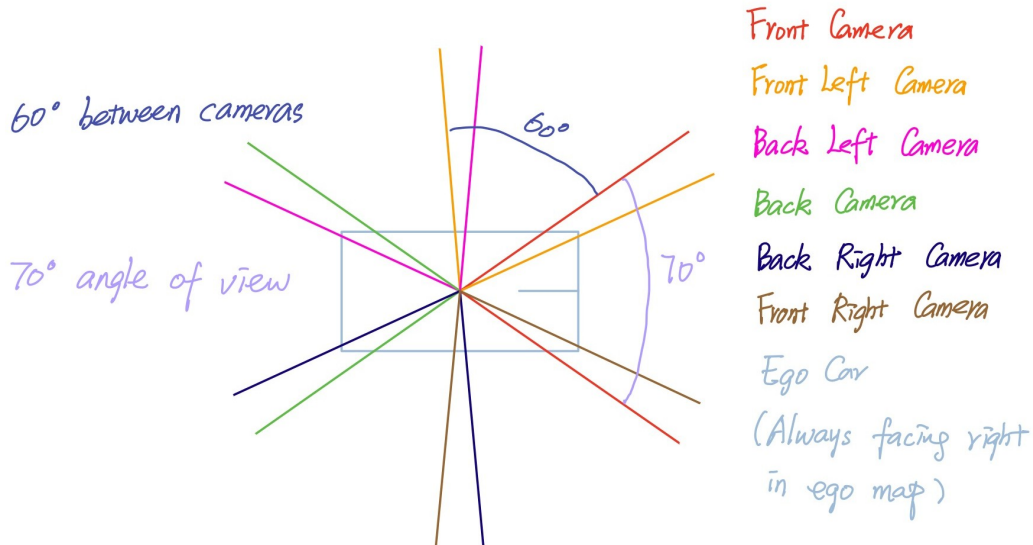 60° between cameras
70° angle of view
60°
70°
Front Camera
Front Left Camera
Back Left Camera
Back Camera
Back Right Camera
Front Right Camera
Ego Car
(Always facing right
in ego map)